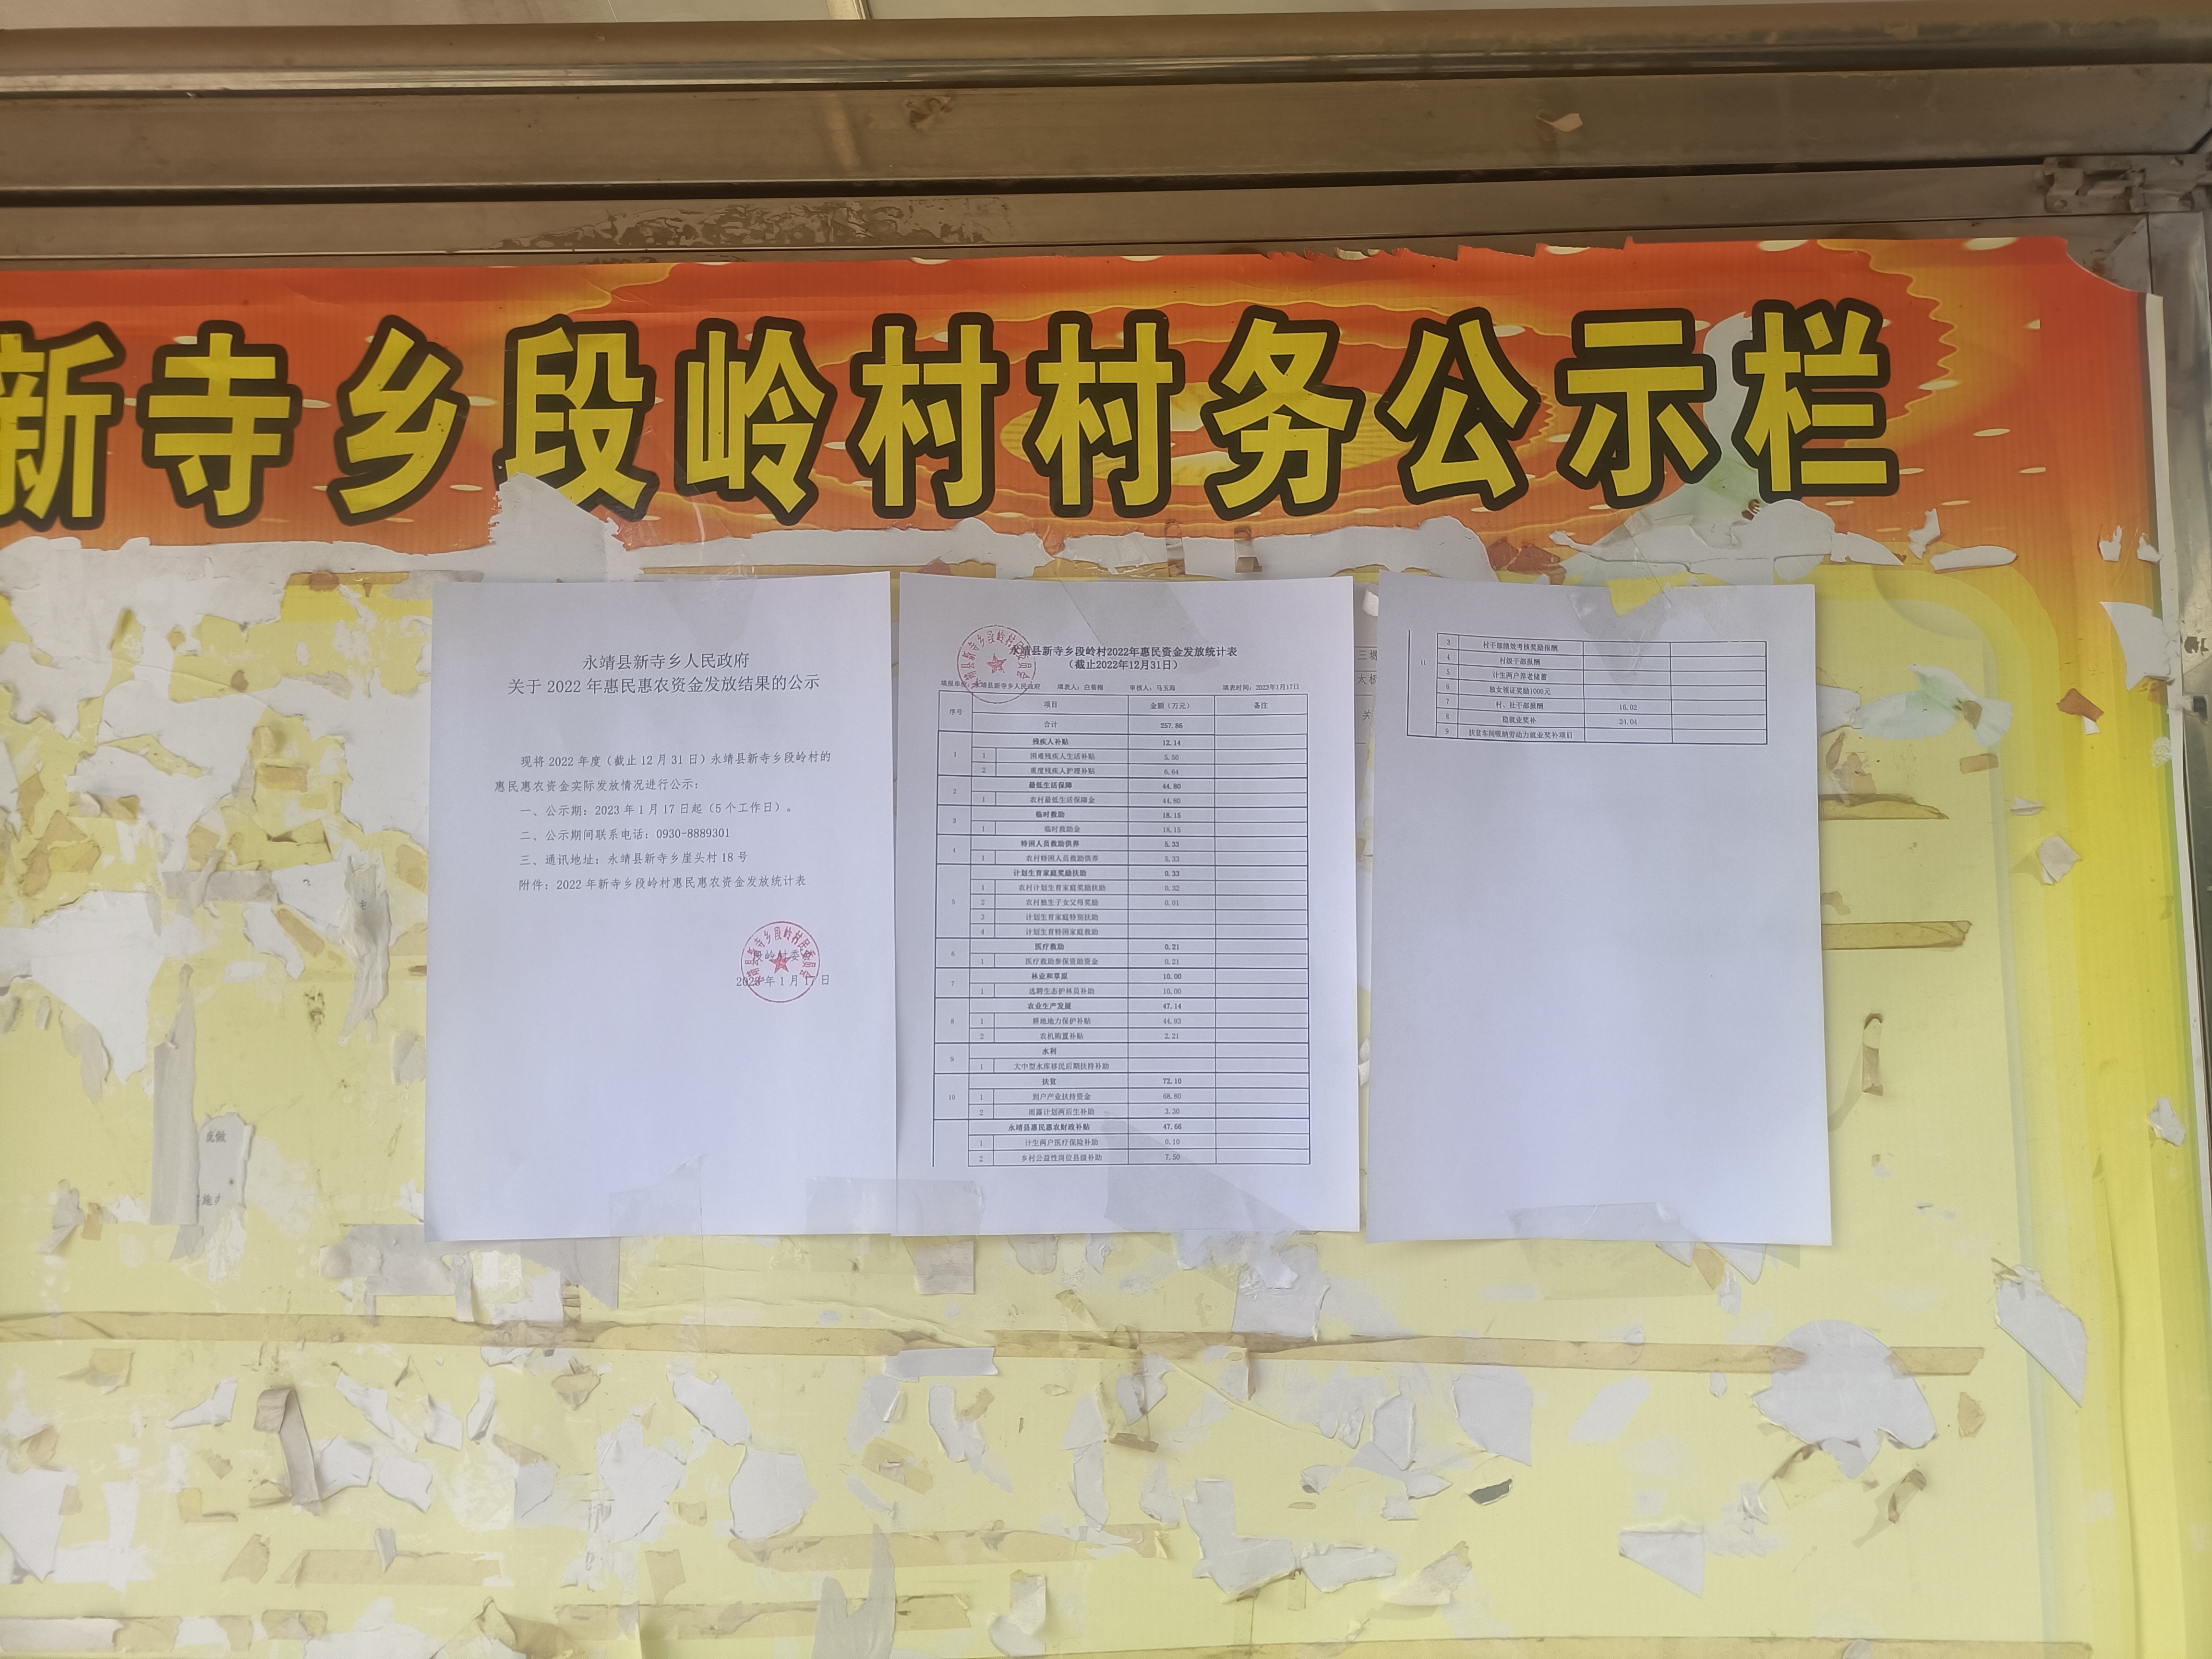 新寺乡段岭村村务公示栏
永靖县新寺乡人民政府
关于 2022 年惠民惠农资金发放结果的公示
现将 2022 年度（截止 12 月 31 日）永靖县新寺乡段岭村的
惠民惠农资金实际发放情况进行公示：
一、公示期：2023 年 1 月 17 日起（5 个工作日）。
二、公示期间联系电话：0930-8889301
三、通讯地址：永靖县新寺乡崖头村 18 号
附件：2022 年新寺乡段岭村惠民惠农资金发放统计表
段岭村委会
2023 年 1 月 17 日
永靖县新寺乡段岭村2022年惠民资金发放统计表
（截止2022年12月31日）
填报单位：永靖县新寺乡人民政府 填表人：白菊梅 审核人：马玉海 填表时间：2023年1月17日
序号 项目 金额（万元） 备注
合计 257.86
1 残疾人补贴 12.14
1 困难残疾人生活补贴 5.50
2 重度残疾人护理补贴 6.64
2 最低生活保障 44.80
1 农村最低生活保障金 44.80
3 临时救助 18.15
1 临时救助金 18.15
4 特困人员救助供养 5.33
1 农村特困人员救助供养 5.33
5 计划生育家庭奖励扶助 0.33
1 农村计划生育家庭奖励扶助 0.32
2 农村独生子女父母奖励 0.01
3 计划生育家庭特别扶助
4 计划生育特困家庭救助
6 医疗救助 0.21
1 医疗救助参保资助资金 0.21
7 林业和草原 10.00
1 选聘生态护林员补助 10.00
8 农业生产发展 47.14
1 耕地地力保护补贴 44.93
2 农机购置补贴 2.21
9 水利
1 大中型水库移民后期扶持补助
10 扶贫 72.10
1 到户产业扶持资金 68.80
2 雨露计划两后生补助 3.30
永靖县惠民惠农财政补贴 47.66
1 计生两户医疗保险补助 0.10
2 乡村公益性岗位县级补助 7.50
11
3 村干部绩效考核奖励报酬
4 村级干部报酬
5 计生两户养老储蓄
6 独女领证奖励1000元
7 村、社干部报酬 16.02
8 稳就业奖补 24.04
9 扶贫车间吸纳劳动力就业奖补项目